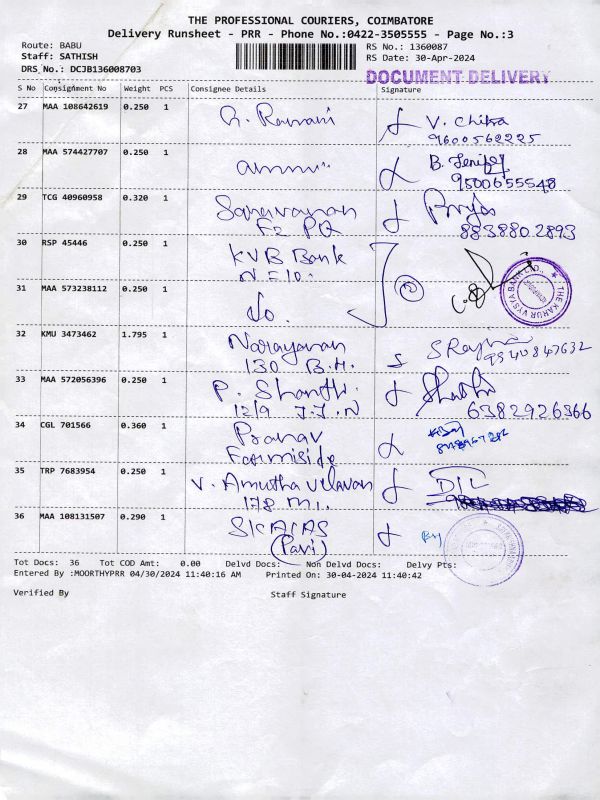 THE PROFESSIONAL COURIERS, COIMBATORE
Delivery Runsheet - PRR - Phone No.:0422-3505555 - Page No.:3
Route: BABU
RS No.: 1360087
Staff: SATHISH
RS Date: 30-Apr-2024
DRS_No.: DCJB136008703
DOCUMENT DELIVERY
S No Consignment No Weight PCS Consignee Details Signature
27 MAA 108642619 0.250 1
V. Chitra
9600562225
28 MAA 574427707 0.250 1
B.
9500655548
29 TCG 40960958 0.320 1 Saravanan
F2 PQ
883880 2893
30 RSP 45446 0.250 1 KVB Bank
31 MAA 573238112 0.250 1 do.
THE KARUR VYSYA BANK LTD.,
32 KMU 3473462 1.795 1 Narayanan
130 B.H.
9540847632
33 MAA 572056396 0.250 1 P. Shanthi
12/9 J.J.N
6382926366
34 CGL 701566 0.360 1 Pranav
Farmiside
35 TRP 7683954 0.250 1 V. Amutha Vilavan
178 M1.
D/L
36 MAA 108131507 0.290 1 SKACAS
(Pavi)
Tot Docs: 36 Tot COD Amt: 0.00 Delvd Docs: Non Delvd Docs: Delvy Pts:
Entered By :MOORTHYPRR 04/30/2024 11:40:16 AM Printed On: 30-04-2024 11:40:42
Verified By Staff Signature